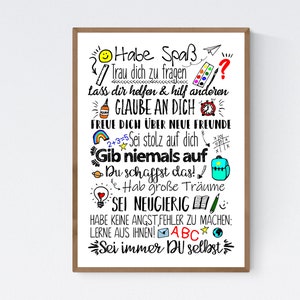 Habe Spaß
Trau dich zu fragen
Lass dir helfen & hilf anderen
GLAUBE AN DICH
FREUE DICH ÜBER NEUE FREUNDE
2+3=5
Sei stolz auf dich
Gib niemals auf
Du schaffst das!
Hab große Träume
SEI NEUGIERIG
HABE KEINE ANGST, FEHLER ZU MACHEN:
LERNE AUS IHNEN!
ABC
Sei immer DU selbst